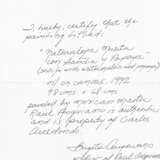 I hereby certify that the
painting titled:
"Naturaleza Muerta
con Sandía y Papaya"
(still life with watermelon and papaya)
oil on canvas, 1992
98 cms x 68 cms
painted by mexican master
Raul Anguiano is authentic
and is property of Carlos
Arredondo.
Brigita Anguiano
of Raul Anguiano